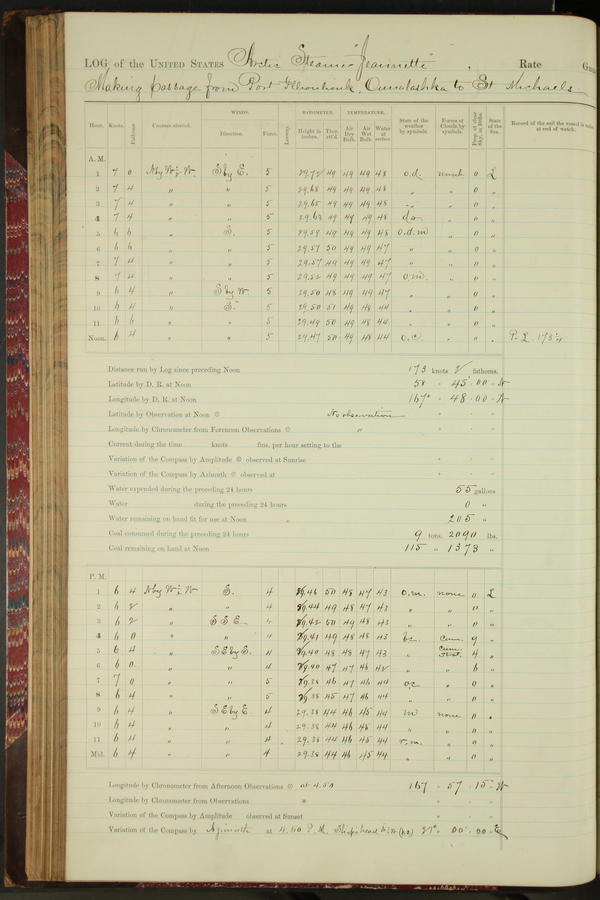 LOG of the UNITED STATES Arctic Steamer "Jeannette", Rate
Making passage from Port Illiouliouk, Ounalashka to St Michaels
WINDS. BAROMETER. TEMPERATURE.
Hour. Knots. Fathoms. Courses steered. Direction. Force. Leeway. Height in inches. Ther. att'd. Air Dry Bulb. Air Wet Bulb. Water at surface. State of the weather by symbols. Forms of Clouds by symbols. Prop. of clear Sky, in 10ths. State of the Sea. Record of the sail the vessel is under at end of watch.
A. M.
1 7 0 N by W ½ W. S by E. 5 29.72 49 49 49 48 o.d. 0 L
2 7 4 " " 5 29.68 49 49 49 48 " " 0 "
3 7 4 " " 5 29.65 49 49 49 48 " " 0 "
4 7 4 " " 5 29.62 49 49 49 48 do " 0 "
5 6 6 " S. 5 29.59 49 49 49 48 o.d.m " 0 "
6 6 6 " " 5 29.57 50 49 49 47 " " 0 "
7 7 4 " " 5 29.57 49 49 49 47 " " 0 "
8 7 4 " " 5 29.52 49 49 49 47 o.m. " 0 "
9 6 4 " S by W. 5 29.50 48 49 49 47 " " 0 "
10 6 4 " S. 5 29.50 51 49 48 44 " " 0 "
11 6 6 " " 5 29.49 50 49 48 44 " " 0 "
Noon. 6 4 " " 5 29.47 50 49 48 44 o.c. " " . P. L. 173¼
Distance run by Log since preceding Noon 173 knots 2 fathoms.
Latitude by D. R. at Noon 58 ° 45 ' 00 " N
Longitude by D. R. at Noon 167° 48 ' 00 " W
Latitude by Observation at Noon No observation
Longitude by Chronometer from Forenoon Observations "
Current during the time knots fms. per hour setting to the
Variation of the Compass by Amplitude observed at Sunrise
Variation of the Compass by Azimuth observed at
Water expended during the preceding 24 hours 55 gallons
Water during the preceding 24 hours 0 "
Water remaining on hand fit for use at Noon 205 "
Coal consumed during the preceding 24 hours 9 tons. 2090 lbs.
Coal remaining on hand at Noon 115 " 1373 "
P. M.
1 6 4 N by W ½ W S. 4 29.46 50 48 47 43 o.m. none 0 L
2 6 2 " " 4 29.44 49 48 47 43 " " 0 "
3 6 2 " S S E 4 29.42 50 49 48 43 " " 0 "
4 6 0 " " 4 29.41 49 48 48 43 bc. Cum. 9 "
5 6 4 " SE by S. 4 29.40 48 48 47 43 " Cum. Strat. 4 "
6 6 0 " " 4 29.40 47 47 46 42 " " 6 "
7 7 0 " " 5 29.38 46 47 46 44 oc " 0 "
8 6 4 " " 5 29.38 45 47 46 44 " " 0 "
9 6 4 " SE by E. 4 29.38 44 46 45 44 m none 0 .
10 6 4 " " 4 29.38 44 46 45 44 " " 0 "
11 6 4 " " 4 29.38 44 46 45 44 r.m. " 0 "
Mid. 6 4 " " 4 29.38 44 46 45 44 " " 0 "
Longitude by Chronometer from Afternoon Observations at 4.50 167 ° 57 ' 15 " W
Longitude by Chronometer from Observations
Variation of the Compass by Amplitude observed at Sunset
Variation of the Compass by Azimuth at 4.50 P.M. Ship's head 21° 00' 00 E